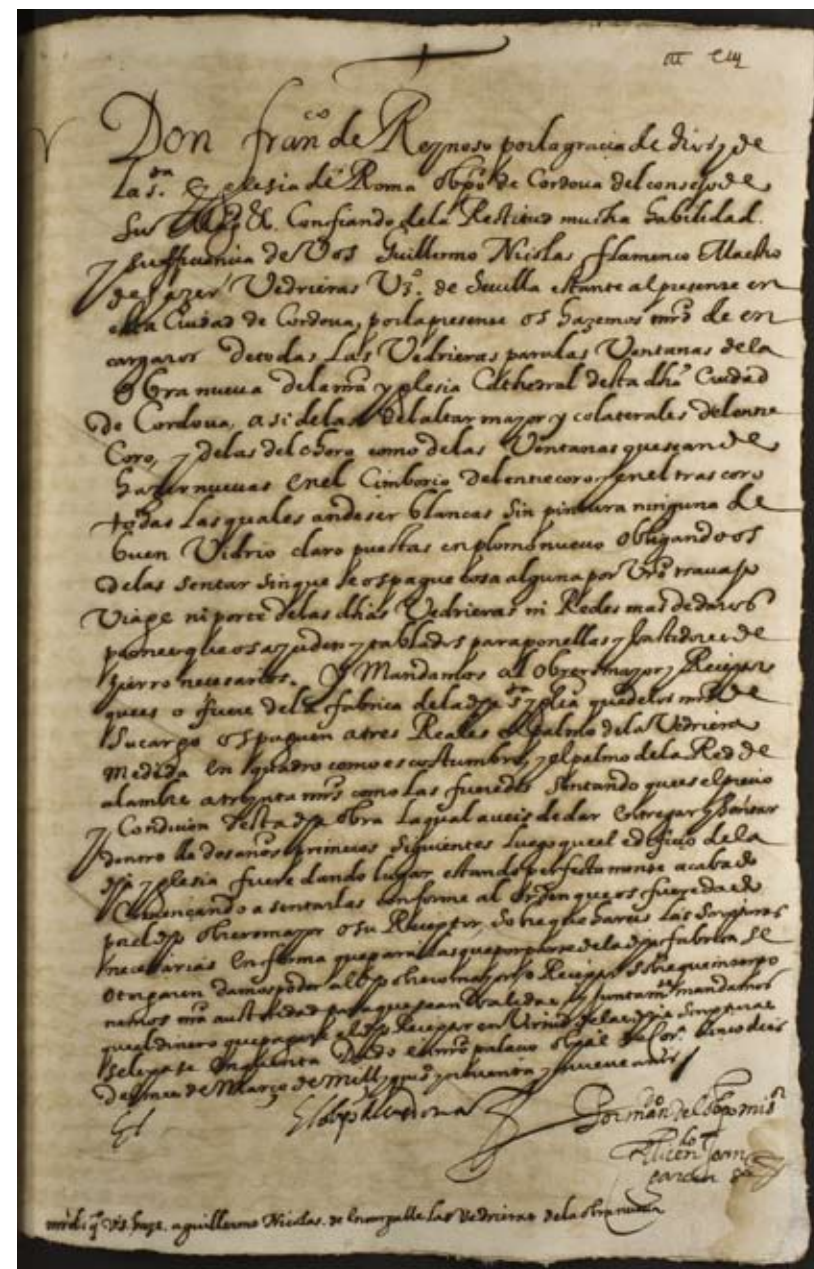 Don fran.co de Reynoso por la gracia de dios y de
la s.ta Yglesia de Roma obpo de Cordova del consejo de
su Mag.d &. Confiando de la Restitud mucha habilidad
y sufficiencia de Vos Guillermo Nicolas flamenco Maestro
de hazer Vedrieras Vz.o de Sevilla estante al presente en
esta Ciudad de Cordova, por la presente os hazemos mrd de en
cargaros de todas Las Vedrieras para las Ventanas de la
Obra nueva de la nra yglesia Cathedral desta dha Ciudad
de Cordova, asi de las del altar mayor y colaterales del entre
Coro, y de las del choro como de las Ventanas que sean de
hazer nuevas en el Cimborio del entrecoro y en el tras coro
todas Las quales an de ser blancas sin pintura ninguna de
buen Vidrio claro puestas en plomo nuevo obligandoos
de las sentar sin que se os pague cosa alguna por Vro travajo
Viage ni porte de las dhas Vedrieras ni Redes mas de daros
peones que os ayuden y tablados para ponellas y bastidores de
hierro necesarios. Y Mandamos al obrero mayor y Receptor
que es o fuere de la fabrica de la dha s.ta yglia que de los mrs de
su cargo os paguen a tres Reales el palmo de la Vedriera
medida en quadro como es costumbre, y el palmo de la Red de
alambre a treynta mrs como las fueredes sentando que es el precio
y Condicion desta dha obra la qual aveis de dar entregar y sentar
dentro de dos años primeros siguientes luego que el edificio de la
dha yglesia fuere dando lugar estando perfectamente acabado
Comenzando a sentarlas conforme al orden que os fuere dado
por el dho obrero mayor o su Receptor, sobre que hareis las scripturas
necesarias en forma que para las que por parte de la dha fabrica se
otorgaren damos poder al dho obrero mayor o Receptor sobre que interpo
nemos nra auttoridad para que sean valedas y juntam.te mandamos
que el dinero que pagare el dho Receptor en Virtud de las dhas scripturas
se le pase en quenta. Dado en nro palacio obpal de Cor.a a cinco dias
del mes de Março de mill y qui.os y noventa y nueve años
El obpo de Cordova
Por man.do del obpo mi s.r
El licen.do Joan
garcia
mrd q VS. haze a guillermo Nicolas. de las Vedrieras de la obra nueva